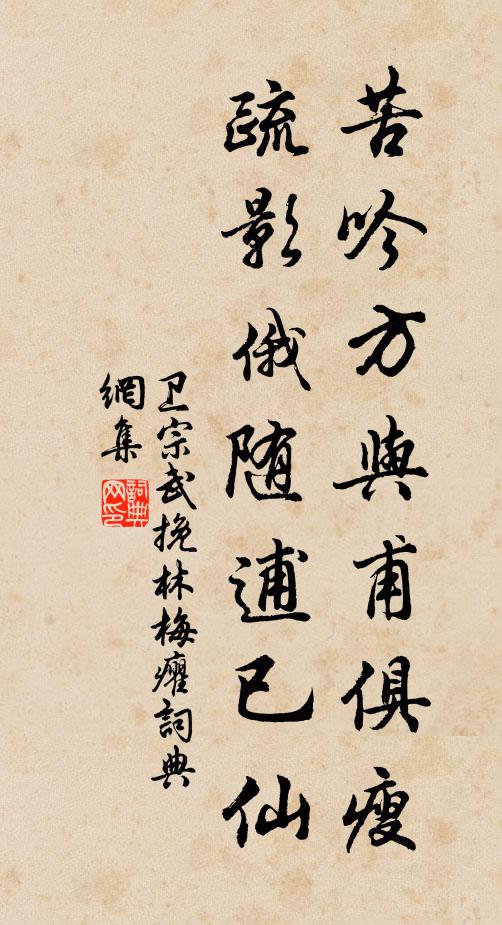 苦吟方與甫俱瘦
疏影俄随逋已仙
卫宗武挽林梅癯詞典
網集
詞典
网印